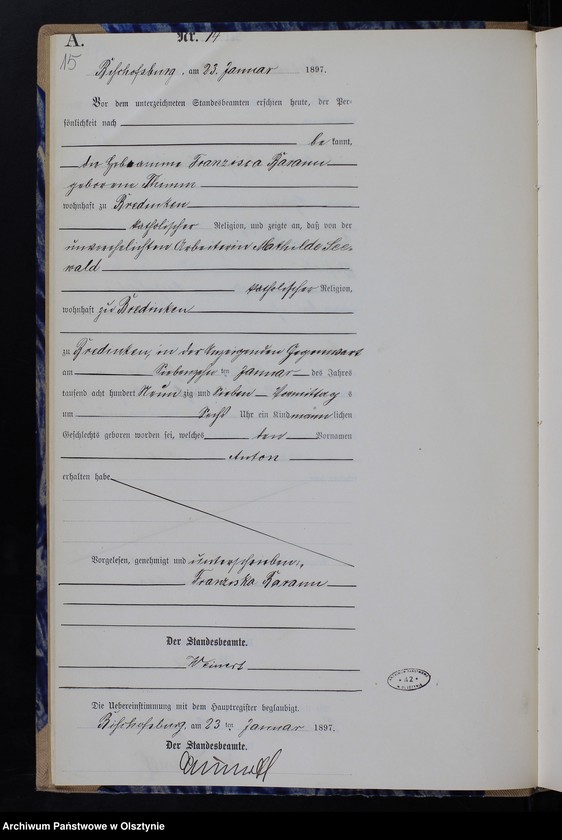 A.
Nr. 14
15
Bischofsburg, am 23. Januar 1897.
Vor dem unterzeichneten Standesbeamten erschien heute, der Per-
sönlichkeit nach
be kannt,
die Hebamme Franziska Barann
geborene
wohnhaft zu Bredinken
katholischer Religion, und zeigte an, daß von der
unverehelichten Arbeiterin Mathilde See-
wald
katholischer Religion,
wohnhaft zu Bredinken
zu Bredinken, in der Anzeigenden Gegenwart
am Siebenzehn ten Januar des Jahres
tausend acht hundert Neun zig und Sieben Vormittag s
um Sechs Uhr ein Kind männ lichen
Geschlechts geboren worden sei, welches den Vornamen
Anton
erhalten habe
Vorgelesen, genehmigt und unterschrieben.
Franziska Barann
Der Standesbeamte.
Weinert
Die Uebereinstimmung mit dem Hauptregister beglaubigt.
Bischofsburg, am 23 ten Januar 1897.
Der Standesbeamte.
42
Archiwum Państwowe w Olsztynie